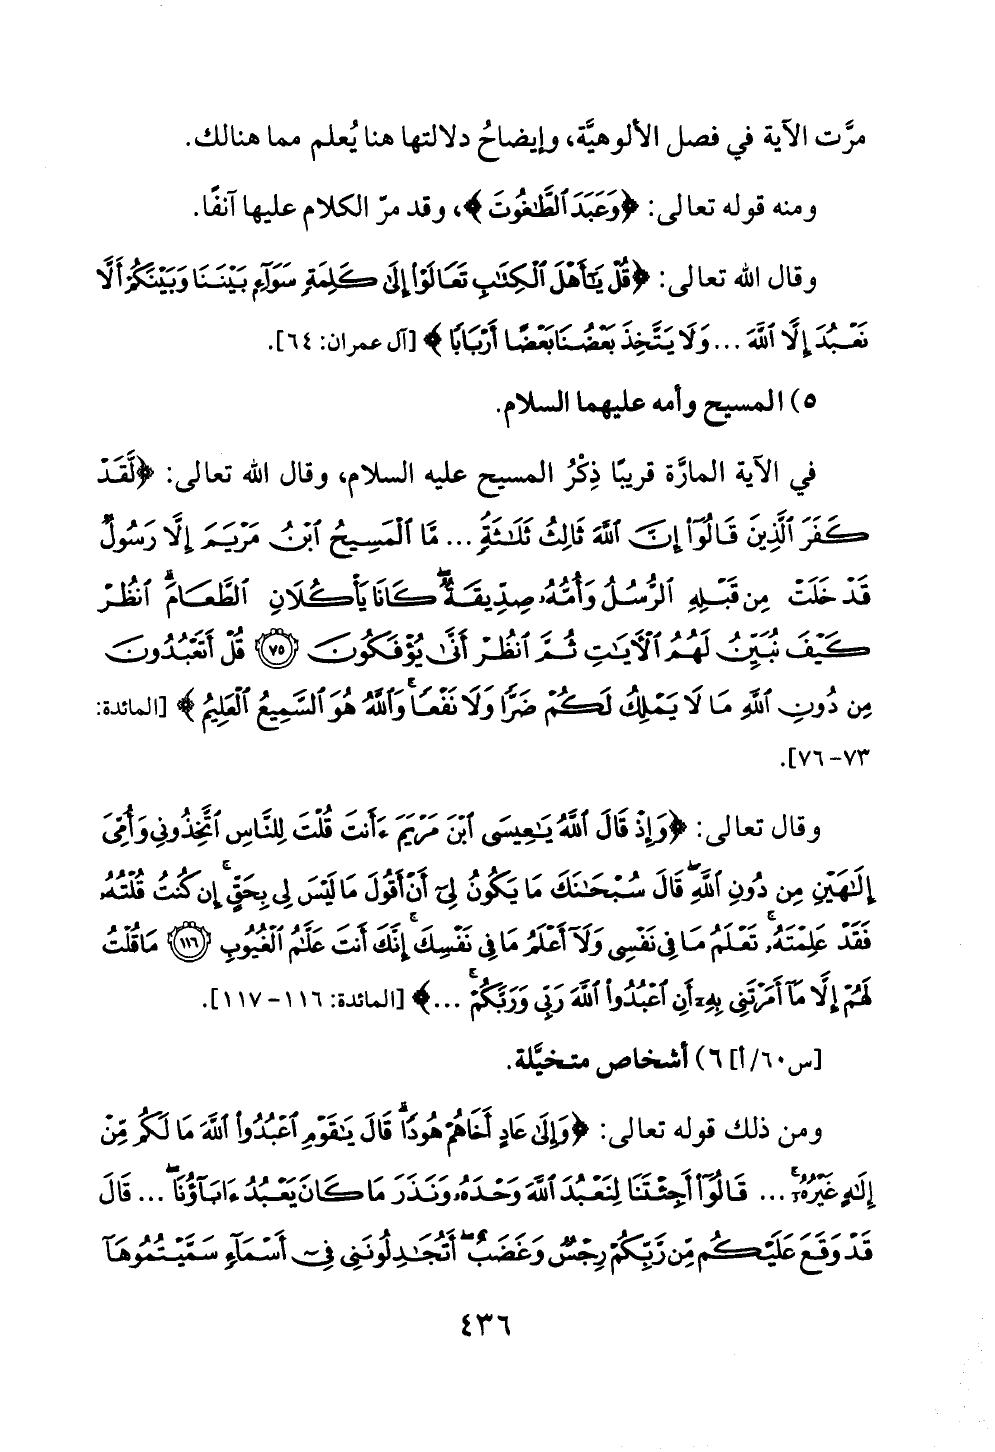 مرَّت الآية في فصل الألوهيَّة، وإيضاحُ دلالتها هنا يُعلم مما هنالك.
ومنه قوله تعالى: ﴿وَعَبَدَ ٱلطَّٰغُوتَ﴾، وقد مرّ الكلام عليها آنفًا.
وقال الله تعالى: ﴿قُلْ يَٰٓأَهْلَ ٱلْكِتَٰبِ تَعَالَوْا۟ إِلَىٰ كَلِمَةٍ سَوَآءٍۭ بَيْنَنَا وَبَيْنَكُمْ أَلَّا
نَعْبُدَ إِلَّا ٱللَّهَ ... وَلَا يَتَّخِذَ بَعْضُنَا بَعْضًا أَرْبَابًا﴾ [آل عمران: ٦٤].
٥) المسيح وأمه عليهما السلام.
في الآية المارَّة قريبًا ذِكْرُ المسيح عليه السلام، وقال الله تعالى: ﴿لَّقَدْ
كَفَرَ ٱلَّذِينَ قَالُوٓا۟ إِنَّ ٱللَّهَ ثَالِثُ ثَلَٰثَةٍۘ ... مَّا ٱلْمَسِيحُ ٱبْنُ مَرْيَمَ إِلَّا رَسُولٌ
قَدْ خَلَتْ مِن قَبْلِهِ ٱلرُّسُلُ وَأُمُّهُۥ صِدِّيقَةٌۖ كَانَا يَأْكُلَانِ ٱلطَّعَامَۗ ٱنظُرْ
كَيْفَ نُبَيِّنُ لَهُمُ ٱلْءَايَٰتِ ثُمَّ ٱنظُرْ أَنَّىٰ يُؤْفَكُونَ ﴿٧٥﴾ قُلْ أَتَعْبُدُونَ
مِن دُونِ ٱللَّهِ مَا لَا يَمْلِكُ لَكُمْ ضَرًّا وَلَا نَفْعًاۚ وَٱللَّهُ هُوَ ٱلسَّمِيعُ ٱلْعَلِيمُ﴾ [المائدة:
٧٣-٧٦].
وقال تعالى: ﴿وَإِذْ قَالَ ٱللَّهُ يَٰعِيسَى ٱبْنَ مَرْيَمَ ءَأَنتَ قُلْتَ لِلنَّاسِ ٱتَّخِذُونِى وَأُمِّىَ
إِلَٰهَيْنِ مِن دُونِ ٱللَّهِۖ قَالَ سُبْحَٰنَكَ مَا يَكُونُ لِىٓ أَنْ أَقُولَ مَا لَيْسَ لِى بِحَقٍّۚ إِن كُنتُ قُلْتُهُۥ
فَقَدْ عَلِمْتَهُۥۚ تَعْلَمُ مَا فِى نَفْسِى وَلَآ أَعْلَمُ مَا فِى نَفْسِكَۚ إِنَّكَ أَنتَ عَلَّٰمُ ٱلْغُيُوبِ ﴿١١٦﴾ مَا قُلْتُ
لَهُمْ إِلَّا مَآ أَمَرْتَنِى بِهِۦٓ أَنِ ٱعْبُدُوا۟ ٱللَّهَ رَبِّى وَرَبَّكُمْۚ ...﴾ [المائدة: ١١٦-١١٧].
[س٦٠/أ] ٦) أشخاص متخيَّلة.
ومن ذلك قوله تعالى: ﴿وَإِلَىٰ عَادٍ أَخَاهُمْ هُودًاۗ قَالَ يَٰقَوْمِ ٱعْبُدُوا۟ ٱللَّهَ مَا لَكُم مِّنْ
إِلَٰهٍ غَيْرُهُۥٓۚ ... قَالُوٓا۟ أَجِئْتَنَا لِنَعْبُدَ ٱللَّهَ وَحْدَهُۥ وَنَذَرَ مَا كَانَ يَعْبُدُ ءَابَآؤُنَاۖ ... قَالَ
قَدْ وَقَعَ عَلَيْكُم مِّن رَّبِّكُمْ رِجْسٌ وَغَضَبٌۖ أَتُجَٰدِلُونَنِى فِىٓ أَسْمَآءٍ سَمَّيْتُمُوهَآ
٤٣٦